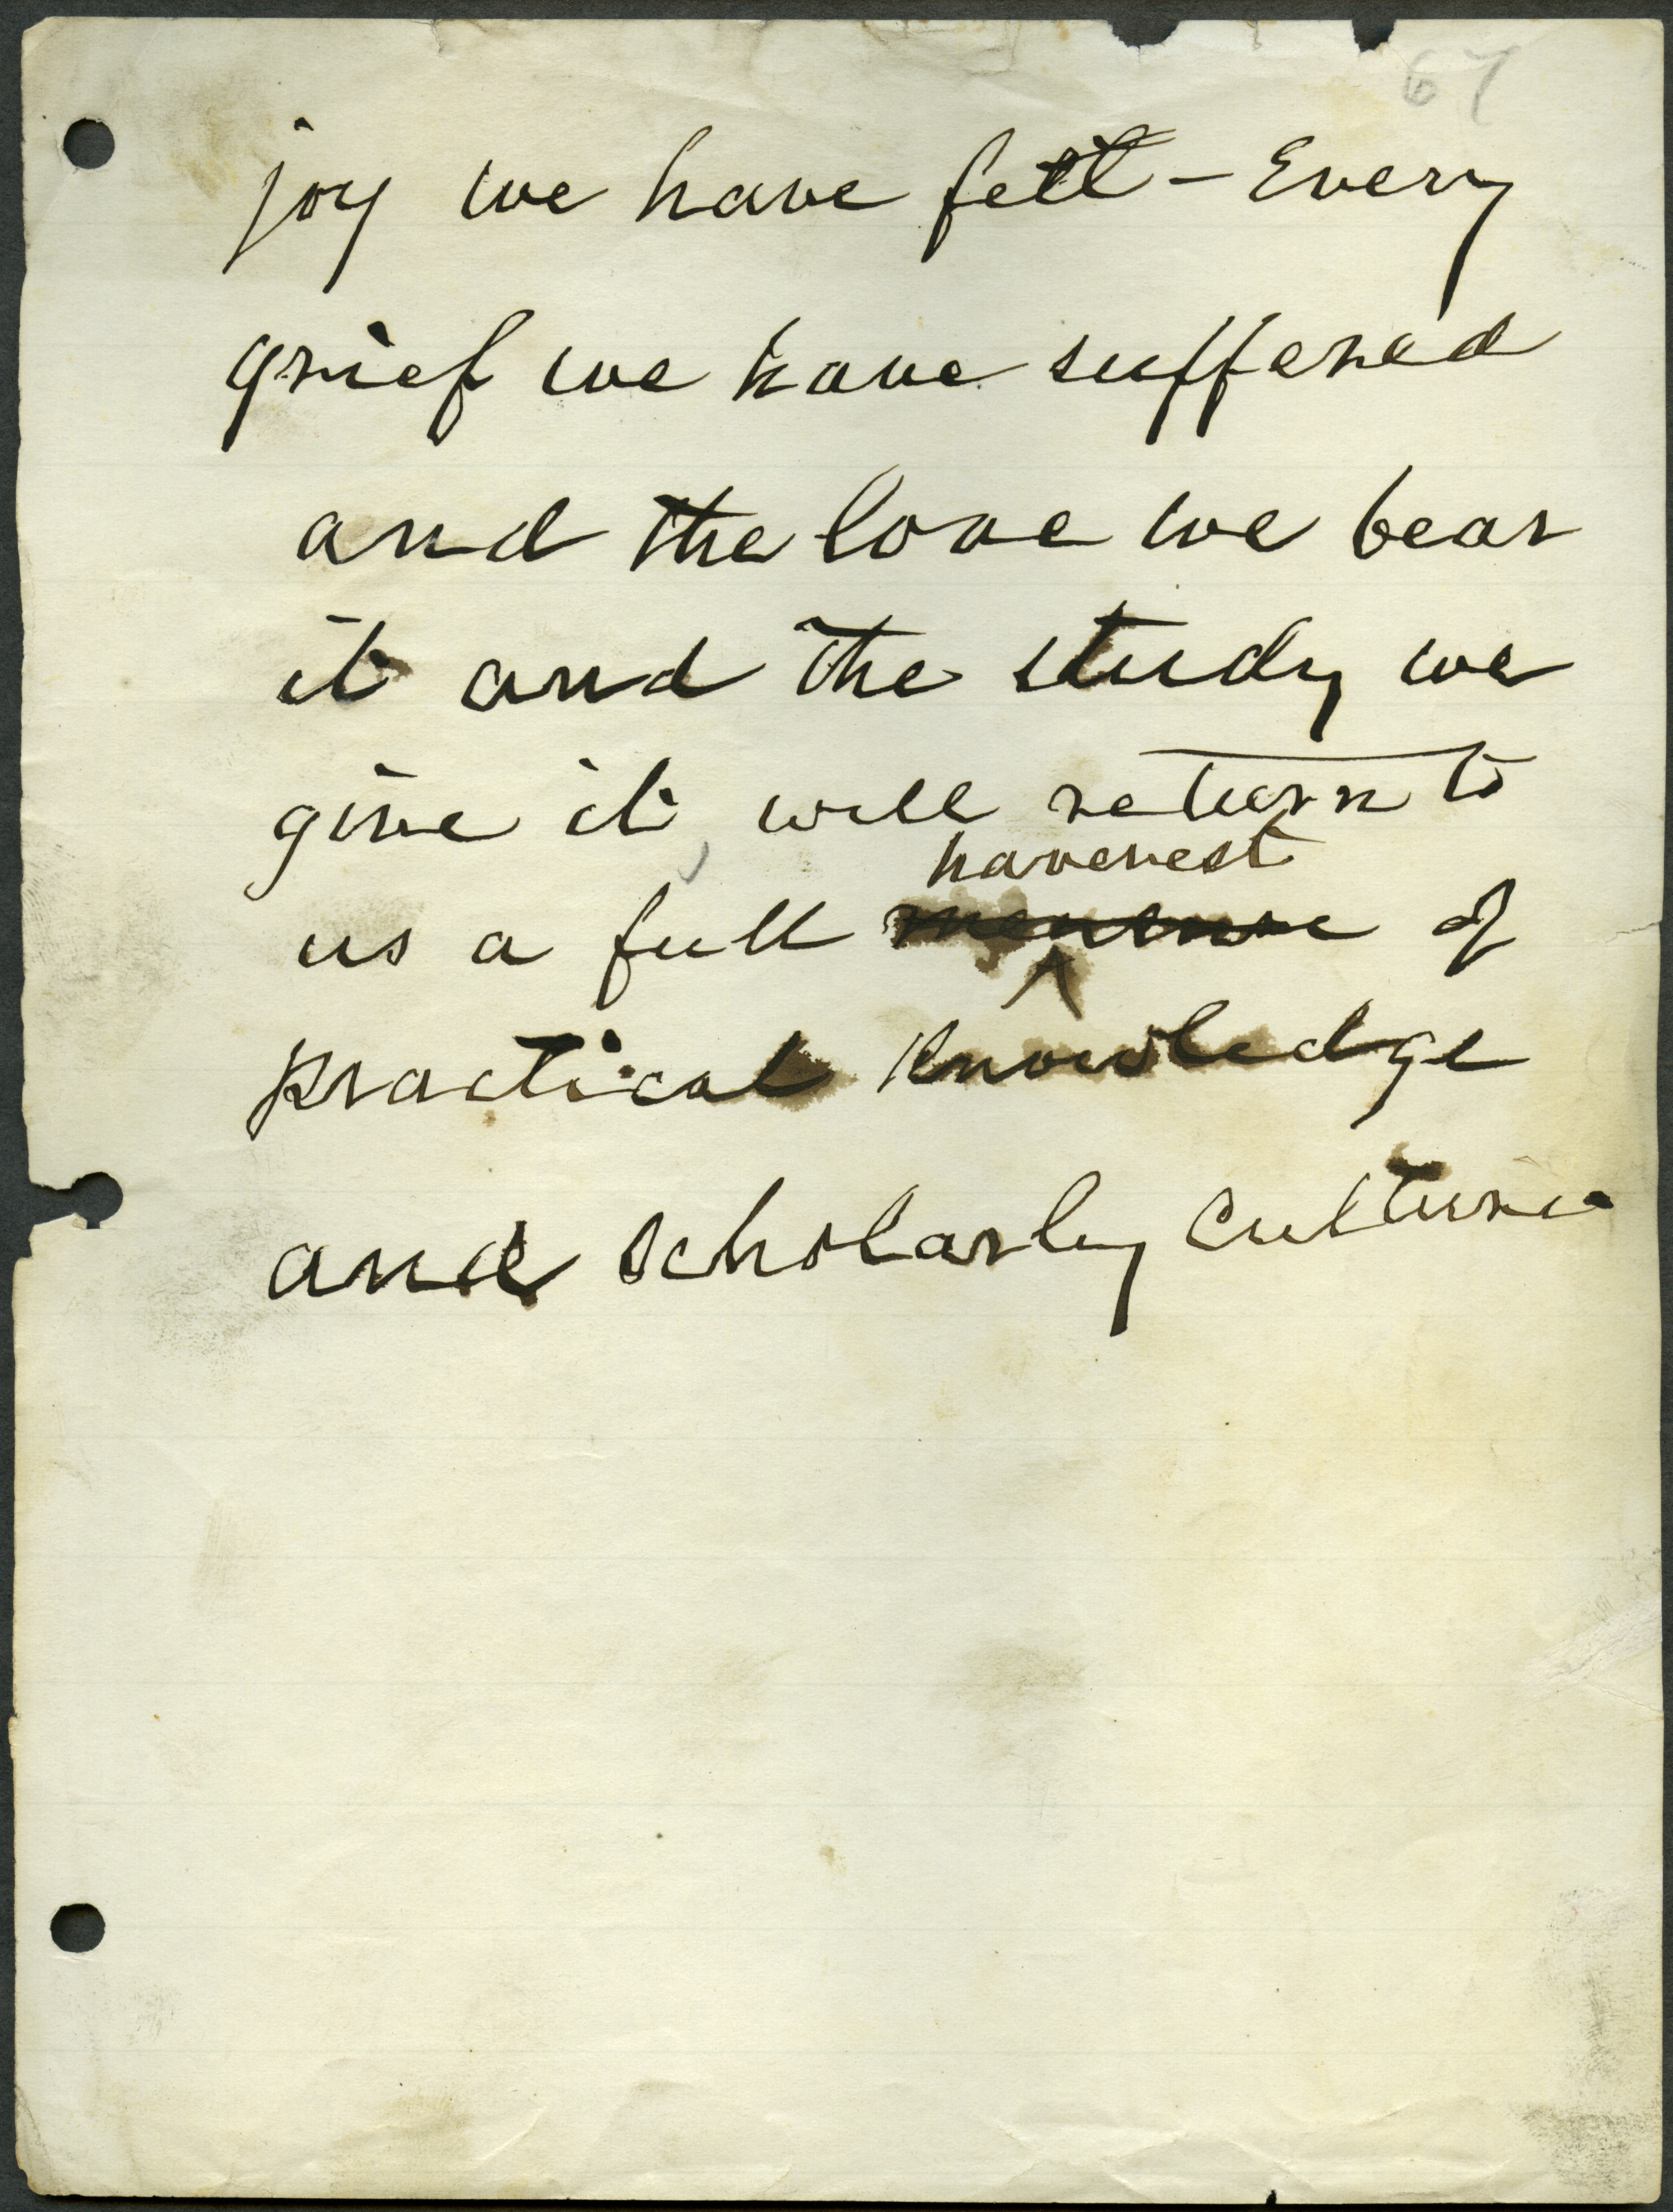 67
joy we have felt - Every
grief we have suffered
and the love we bear
it and the study we
give it, will return to
haverest
us a full of
practical knowledge
and scholarly culture.